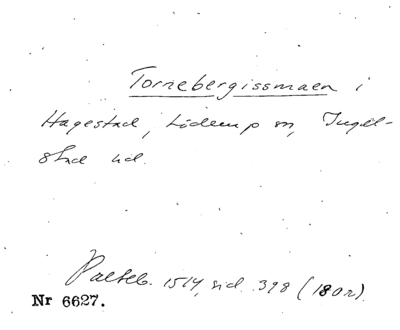 Tornebergissmaen i
Hagestad, Löderup sn, Ingel-
stad hd.
Palteb. 1514, sid. 398 (180r).
Nr 6627.